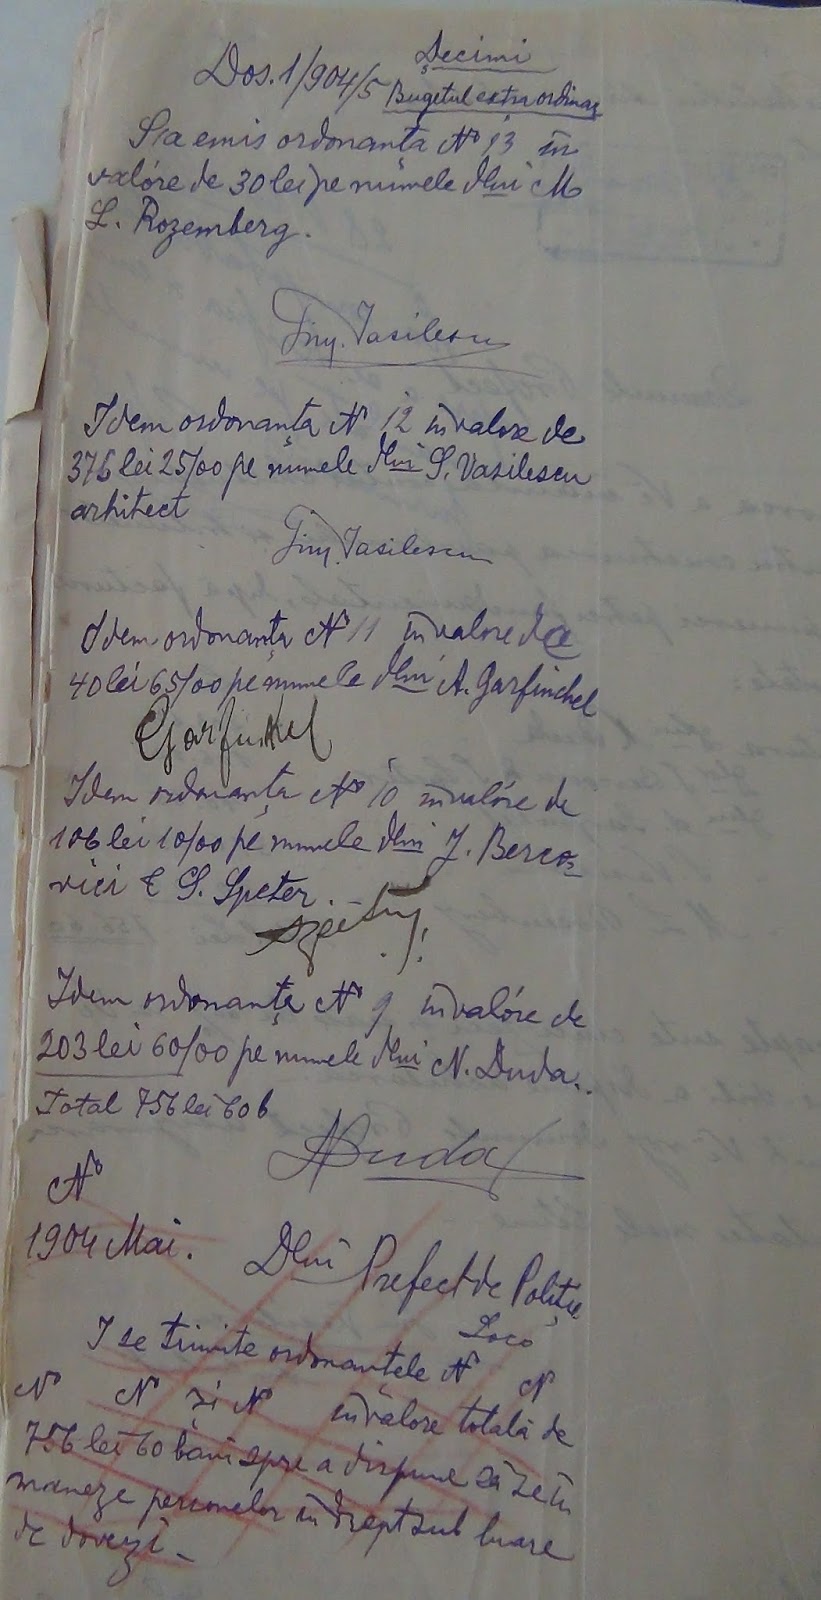 Decimi
Dos. 1/904/5 Bugetul extraordinar
S'a emis ordonanța No 13 în
valóre de 30 lei pe numele dlui M
L. Rozemberg.
Gr. Vasilescu
Idem ordonanța No 12 în valore de
376 lei 25/00 pe numele dlui S. Vasilescu
arhitect
Vasilescu
Idem ordonanța No 11 în valore de
40 lei 65/00 pe numele dlui A. Garfinchel
Garfinkel
Idem ordonanța No 10 în valóre de
106 lei 10/00 pe numele dlui J. Berco-
vici & S. Speter.
Idem ordonanța No 9 în valóre de
203 lei 60/00 pe numele dlui N. Duda.
Total 756 lei 60 b
NDuda
No
1904 Mai. Dlui Prefect de Poliție
Loco
I se trimite ordonanțele No N
No No și No în valore totală de
756 lei 60 bani spre a dispune să se în
maneze persónelor în drept sub luare
de dovezi_